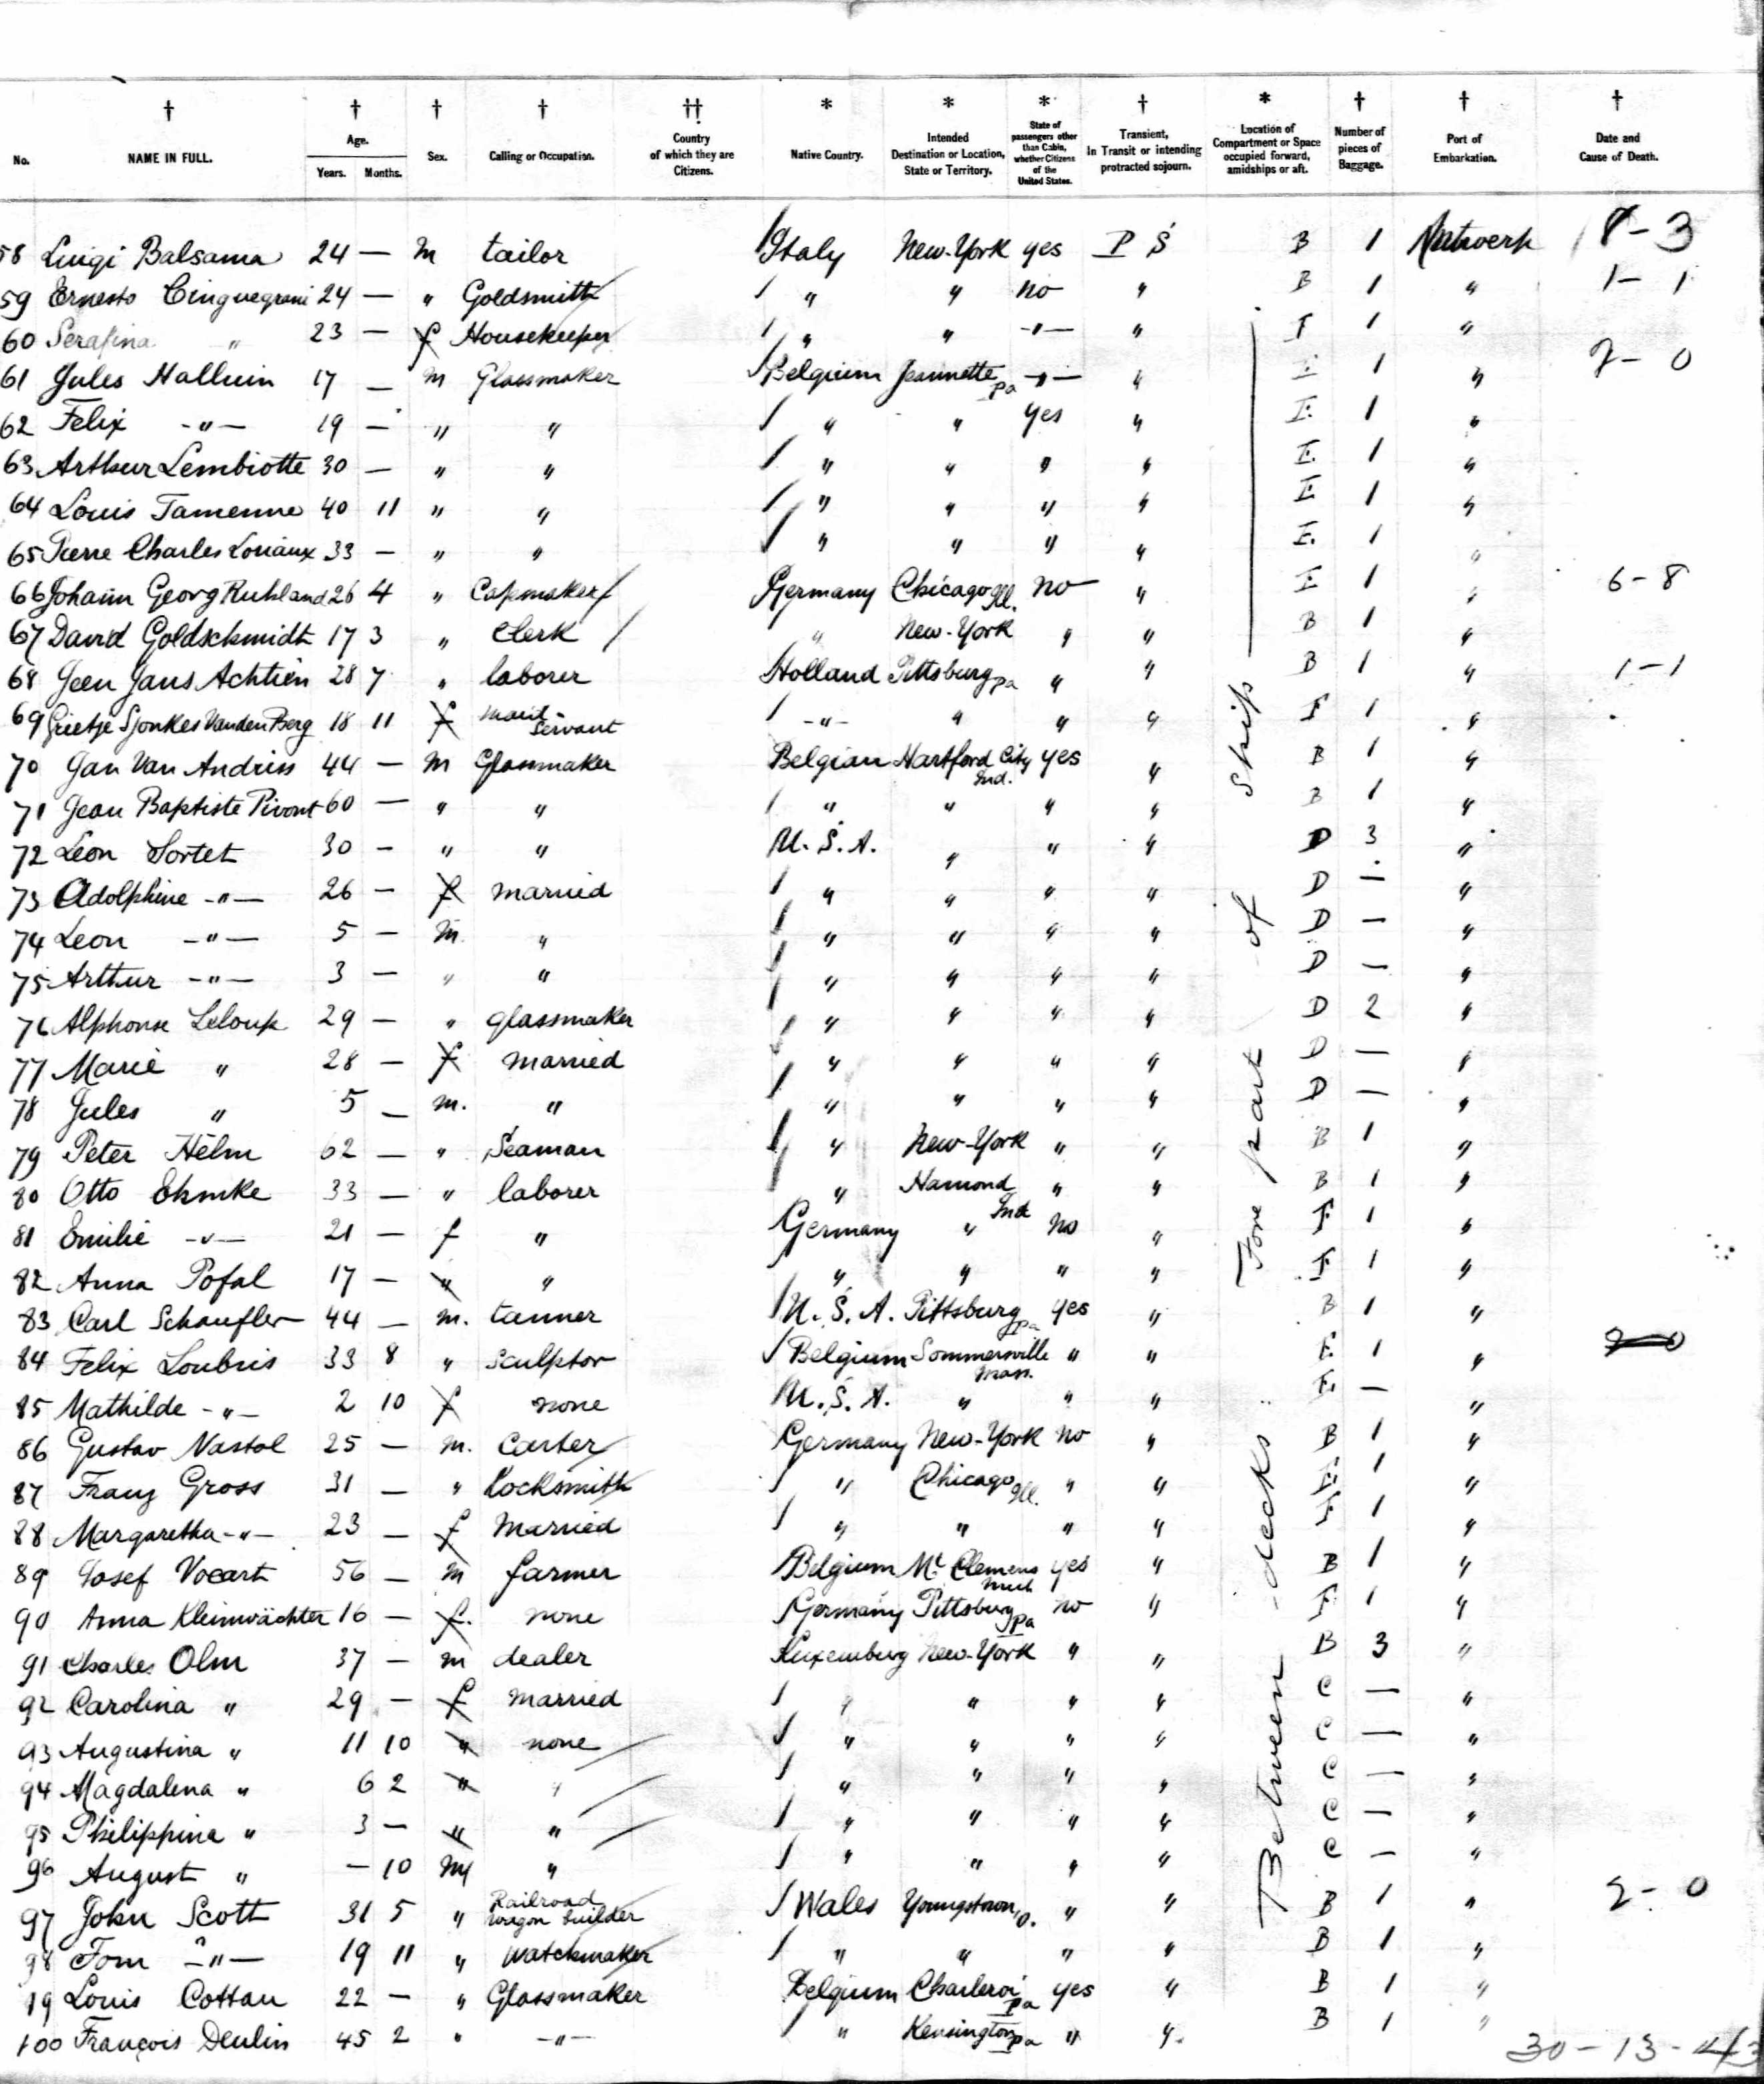 † † † † †† * * * † * † † †
No. NAME IN FULL. Age. Years. Months. Sex. Calling or Occupation. Country of which they are Citizens. Native Country. Intended Destination or Location, State or Territory. State of passengers other than Cabin, whether Citizens of the United States. Transient, In Transit or intending protracted sojourn. Location of Compartment or Space occupied forward, amidships or aft. Number of pieces of Baggage. Port of Embarkation. Date and Cause of Death.
58 Luigi Balsama 24 — m tailor Italy New-York yes P S B 1 Antwerp 8-3
59 Ernesto Cinquegrani 24 — " Goldsmith " " no " B 1 " 1-1
60 Serafina " 23 — f Housekeeper " " -"- " F 1 "
61 Jules Halluin 17 — m Glassmaker Belgium Jeannette pa -"- " E 1 " 2-0
62 Felix -"- 19 — " " " " yes " E. 1 "
63 Arthur Lembiotte 30 — " " " " " " E. 1 "
64 Louis Tamenne 40 11 " " " " " " E 1 "
65 Pierre Charles Loriaux 33 — " " " " " " E. 1 "
66 Johann Georg Ruhland 26 4 " Capmaker Germany Chicago Ill. no " E 1 " 6-8
67 David Goldschmidt 17 3 " Clerk " New-York " " B 1 "
68 Geen Jans Achtien 28 7 " laborer Holland Pittsburg pa " " B 1 " 1-1
69 Grietje Sjonkes Vanden Berg 18 11 f maid-servant -"- " " " F 1 "
70 Jan Van Andriss 44 — m Glassmaker Belgian Hartford City Ind. yes " B 1 "
71 Jean Baptiste Pivont 60 — " " " " " " B 1 "
72 Leon Sortet 30 — " " U.S.A. " " " D 3 "
73 Adolphine -"- 26 — f married " " " " D — "
74 Leon -"- 5 — m. " " " " " D — "
75 Arthur -"- 3 — " " " " " " D — "
76 Alphonse Leloup 29 — " glassmaker " " " " D 2 "
77 Marie " 28 — f married " " " " D — "
78 Jules " 5 — m. " " " " " D — "
79 Peter Helm 62 — " Seaman " New-York " " B 1 "
80 Otto Ehmke 33 — " laborer " Hamond Ind " " B 1 "
81 Emilie -"- 21 — f " Germany " no " F 1 "
82 Anna Pofal 17 — " " " " " " F 1 "
83 Carl Schaufler 44 — m. tanner U.S.A. Pittsburg pa yes " B 1 "
84 Felix Loubris 33 8 " Sculptor Belgium Sommersville Mass. " " E 1 " 2-0
85 Mathilde -"- 2 10 f none U.S.A. " " " E. — "
86 Gustav Nastol 25 — m. Carter Germany New-York no " B 1 "
87 Franz Gross 31 — " Locksmith " Chicago Ill. " " E 1 "
88 Margaretha -"- 23 — f Married " " " " F 1 "
89 Josef Vocart 56 — m farmer Belgium Mt Clemens Mich yes " B 1 "
90 Anna Kleinwächter 16 — f. none Germany Pittsburg pa no " F 1 "
91 Charles Olm 37 — m dealer Luxemburg New-York " " B 3 "
92 Carolina " 29 — f married " " " " C — "
93 Augustina " 11 10 " none " " " " C — "
94 Magdalena " 6 2 " " " " " " C — "
95 Philippina " 3 — " " " " " " C — "
96 August " — 10 m " " " " " C — "
97 John Scott 31 5 " Railroad wagon builder Wales Youngstown, O. " " B 1 " 2-0
98 Tom -"- 19 11 " Watchmaker " " " " B 1 "
99 Louis Cottau 22 — " Glassmaker Belgium Charleroi pa yes " B 1 "
100 François Deulin 45 2 " -"- " Kensington pa " " B 1 "
Between decks Fore part of ship
30-13-43